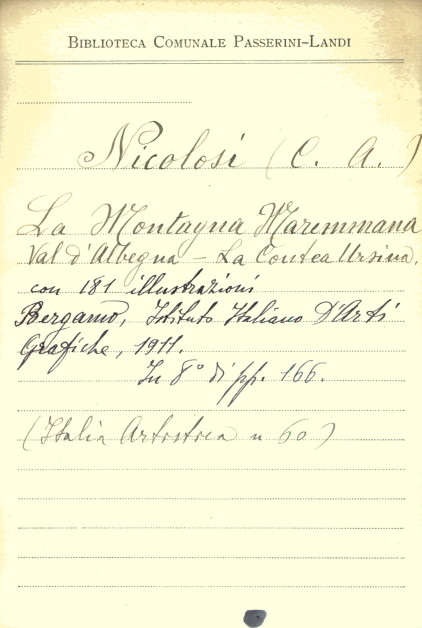 BIBLIOTECA COMUNALE PASSERINI-LANDI
Nicolosi (C. A.)
La Montagna Maremmana
Val d'Albegna - La Contea Ursina,
con 181 illustrazioni
Bergamo, Istituto Italiano D'Arti
Grafiche, 1911.
In 8° di pp. 166.
(Italia Artistica n 60)